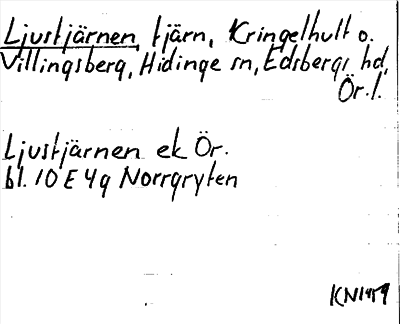 Ljustjärnen, tjärn, Kringelhult o.
Villingsberg, Hidinge sn, Edsbergs hd,
Ör. l.
Ljustjärnen ek Ör.
bl. 10 E 4g Norrgryten